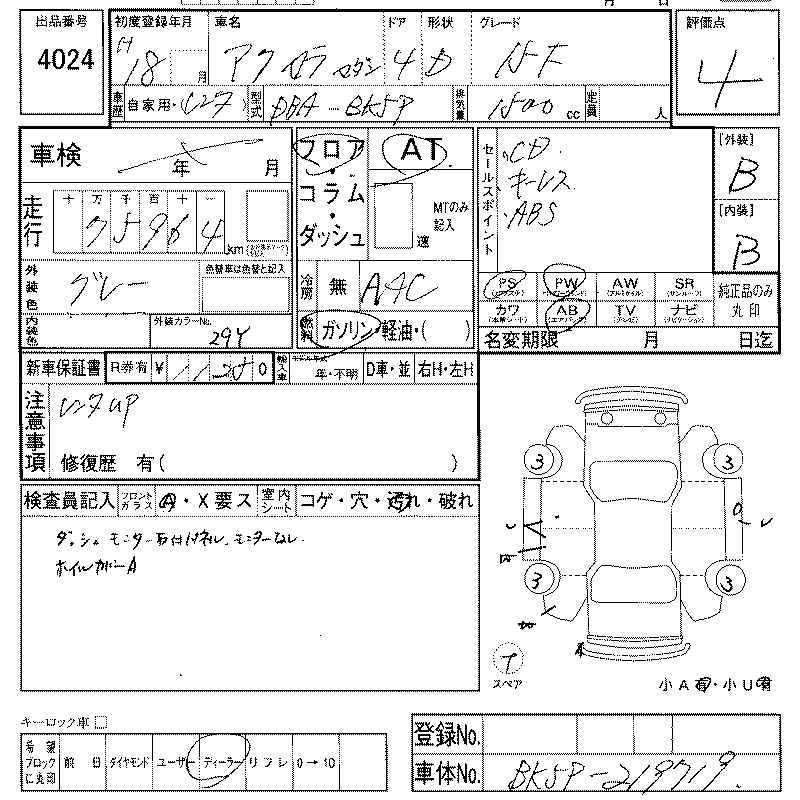 出品番号 4024
初度登録年月 H18 月
車名 アクセラ セダン
ドア 4
形状 D
グレード 15F
評価点 4
車歴 自家用・(レンタ)
型式 DBA-BK5P
排気量 1500 cc
定員 人
車検 年 月
フロア・コラム・ダッシュ
AT
MTのみ記入 速
セールスポイント
CD
キーレス
ABS
[外装] B
[内装] B
走行 十 万 千 百 十 一
75964 km
外装色 グレー
色替車は色替と記入
内装色
外装カラーNo. 29Y
冷房 無 AAC
燃料 ガソリン・軽油・( )
PS PW AW SR
カワ AB TV ナビ
純正品のみ丸印
名変期限 月 日迄
新車保証書 R券有 ¥ 0
輸入車 モデル年式 年・不明 D車・並 右H・左H
注意事項 レンタUP
修復歴 有( )
検査員記入 フロントガラス A・X要ス 室内シート コゲ・穴・汚れ・破れ
ダッシュ モニター取付けネジ、モニターなし
ホイルカバーA
3 3
3 3
T
スペア
小A有・小U有
キーロック車 □
希望ブロックに丸印 前日 ダイヤモンド ユーザー ディーラー リフレ 0→10
登録No.
車体No. BK5P-219719